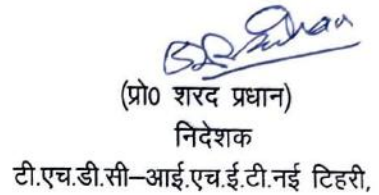 (प्रो0 शरद प्रधान)
निदेशक
टी.एच.डी.सी–आई.एच.ई.टी.नई टिहरी,